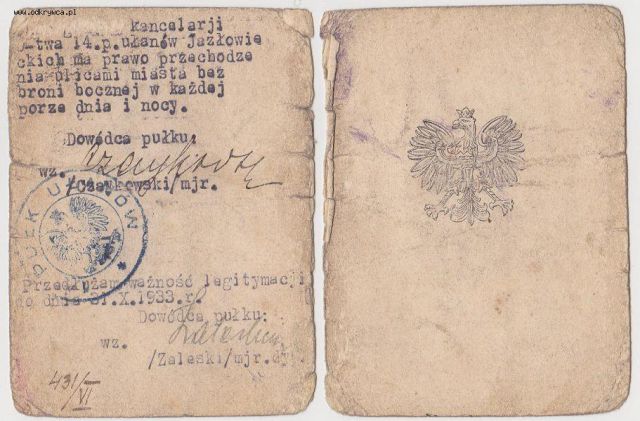 www.odkrywca.pl
kancelarji
twa 14.p.ułanów Jazłowie
ckich ma prawo przechodze
nia ulicami miasta bez
broni bocznej w każdej
porze dnia i nocy.
Dowódca pułku:
wz.
/Czaykowski/mjr.
PUŁK UŁANÓW
Przedłużam ważność legitymacji
do dnia 31.X.1933.r.
Dowódca pułku:
wz.
/Zaleski/mjr.
431/VI